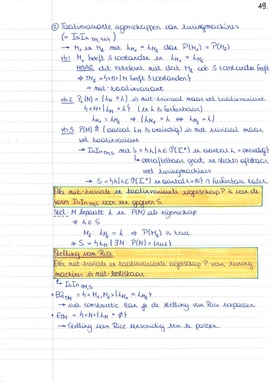 49.
② Taalinvariante eigenschappen van turingmachines
(= IsIn TM,S)
→ M₁ en M₂ met L_M₁ = L_M₂ dan P(M₁) = P(M₂)
vb.1 M₁ heeft 3 toestanden en L_M₁ = L_M₂
MAAR dit betekent niet dat M₂ ook 3 toestanden heeft
→ TM₃ = {<M> | M heeft 3 toestanden}
= niet-taalinvariant
vb.2 P₂(M) = (L_M = L) is niet-triviaal maar wel taalinvariant
L_M₁ = L_M₂ → (L_M₁ = L ⇔ L_M₂ = L)
vb.3 P(M) = (aantal L_M is oneindig) is niet triviaal maar
wel taalinvariant
→ IsIn TM,S met S = {L ∈ P(Σ*) en aantal L = oneindig}
vele turingmachines
Elke niet-triviale en taalinvariante eigenschap P is van de
vorm IsIn TM,S voor een gegeven S.
Stel: M bepaalt L en P(M) als eigenschap
→ L ∈ S
M₂ : L_M₂ = L → P(M₂) is true
→ S = {L_M | ∃M : P(M) = true}
Stelling van Rice
Elke niet-triviale en taalinvariante eigenschap P van turing
machines is niet-beslisbaar.
↳ IsIn TM,S
• EQ_TM = {<M₁, M₂> | L_M₁ = L_M₂}
→ via constructie kan je de stelling van Rice toepassen
• E_TM = {<M> | L_M = ∅}
→ Stelling van Rice eenvoudig toe te passen.